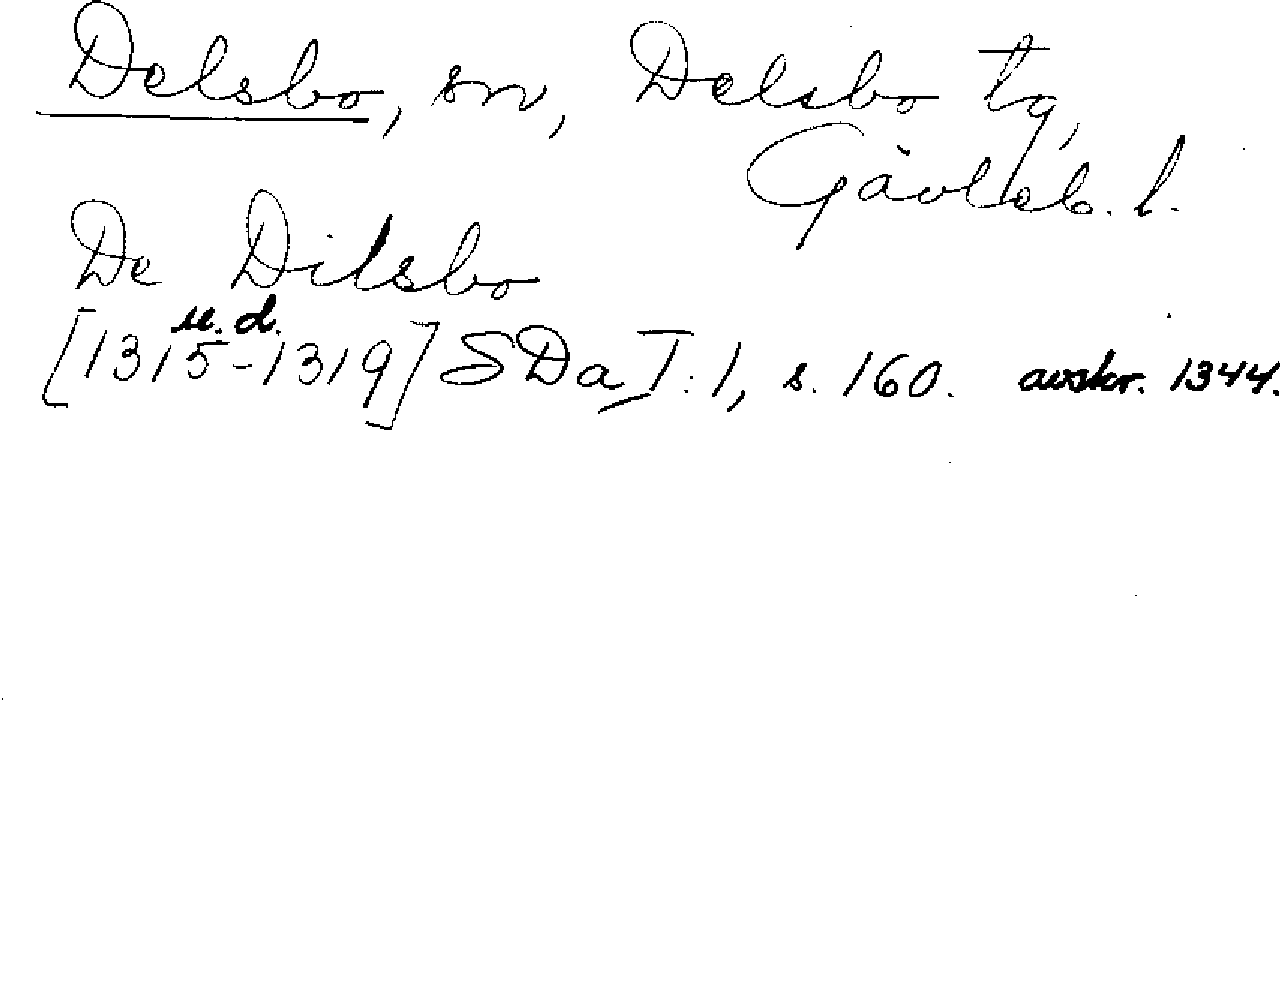 Delsbo, sn, Delsbo tg,
Gävleb. l.
De Dilsbo
u. d.
[1315-1319] SDa I:1, s. 160. avskr. 1344.